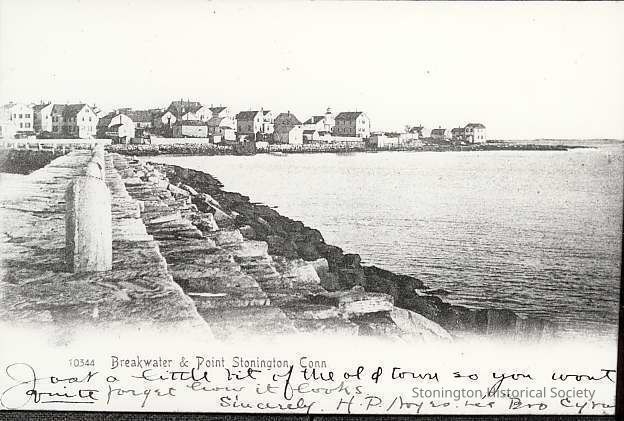 Stonington Historical Society
10344 Breakwater & Point Stonington, Conn
Just a little bit of the old town so you wont
quite forget how it looks.
Stonington Historical Society
Sincerely, H. P.